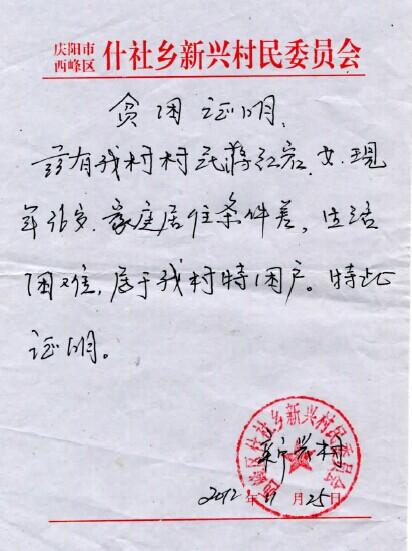 庆阳市
西峰区 什社乡新兴村民委员会
贫困证明
兹有我村村民蒋红宏,女,现
年36岁,家庭居住条件差,生活
困难,属于我村特困户。特此
证明。
西峰区什社乡新兴村民委员会
新兴村
2012年11月25日